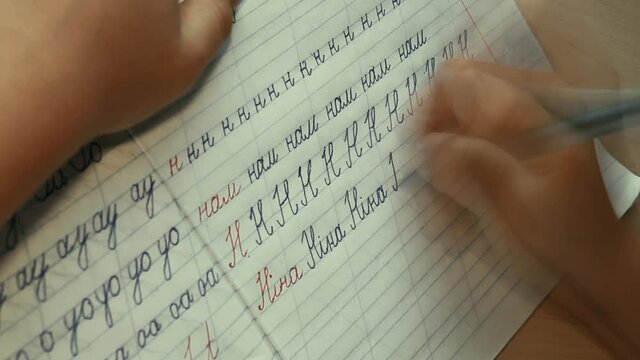 ау ау ау ау
о уо уо уо уо
оа оа оа оа
н н н н н н н н н н н н н н н
нам нам нам нам нам нам
Н Н Н Н Н Н Н Н Н Н Н Н
Ніна Ніна Ніна